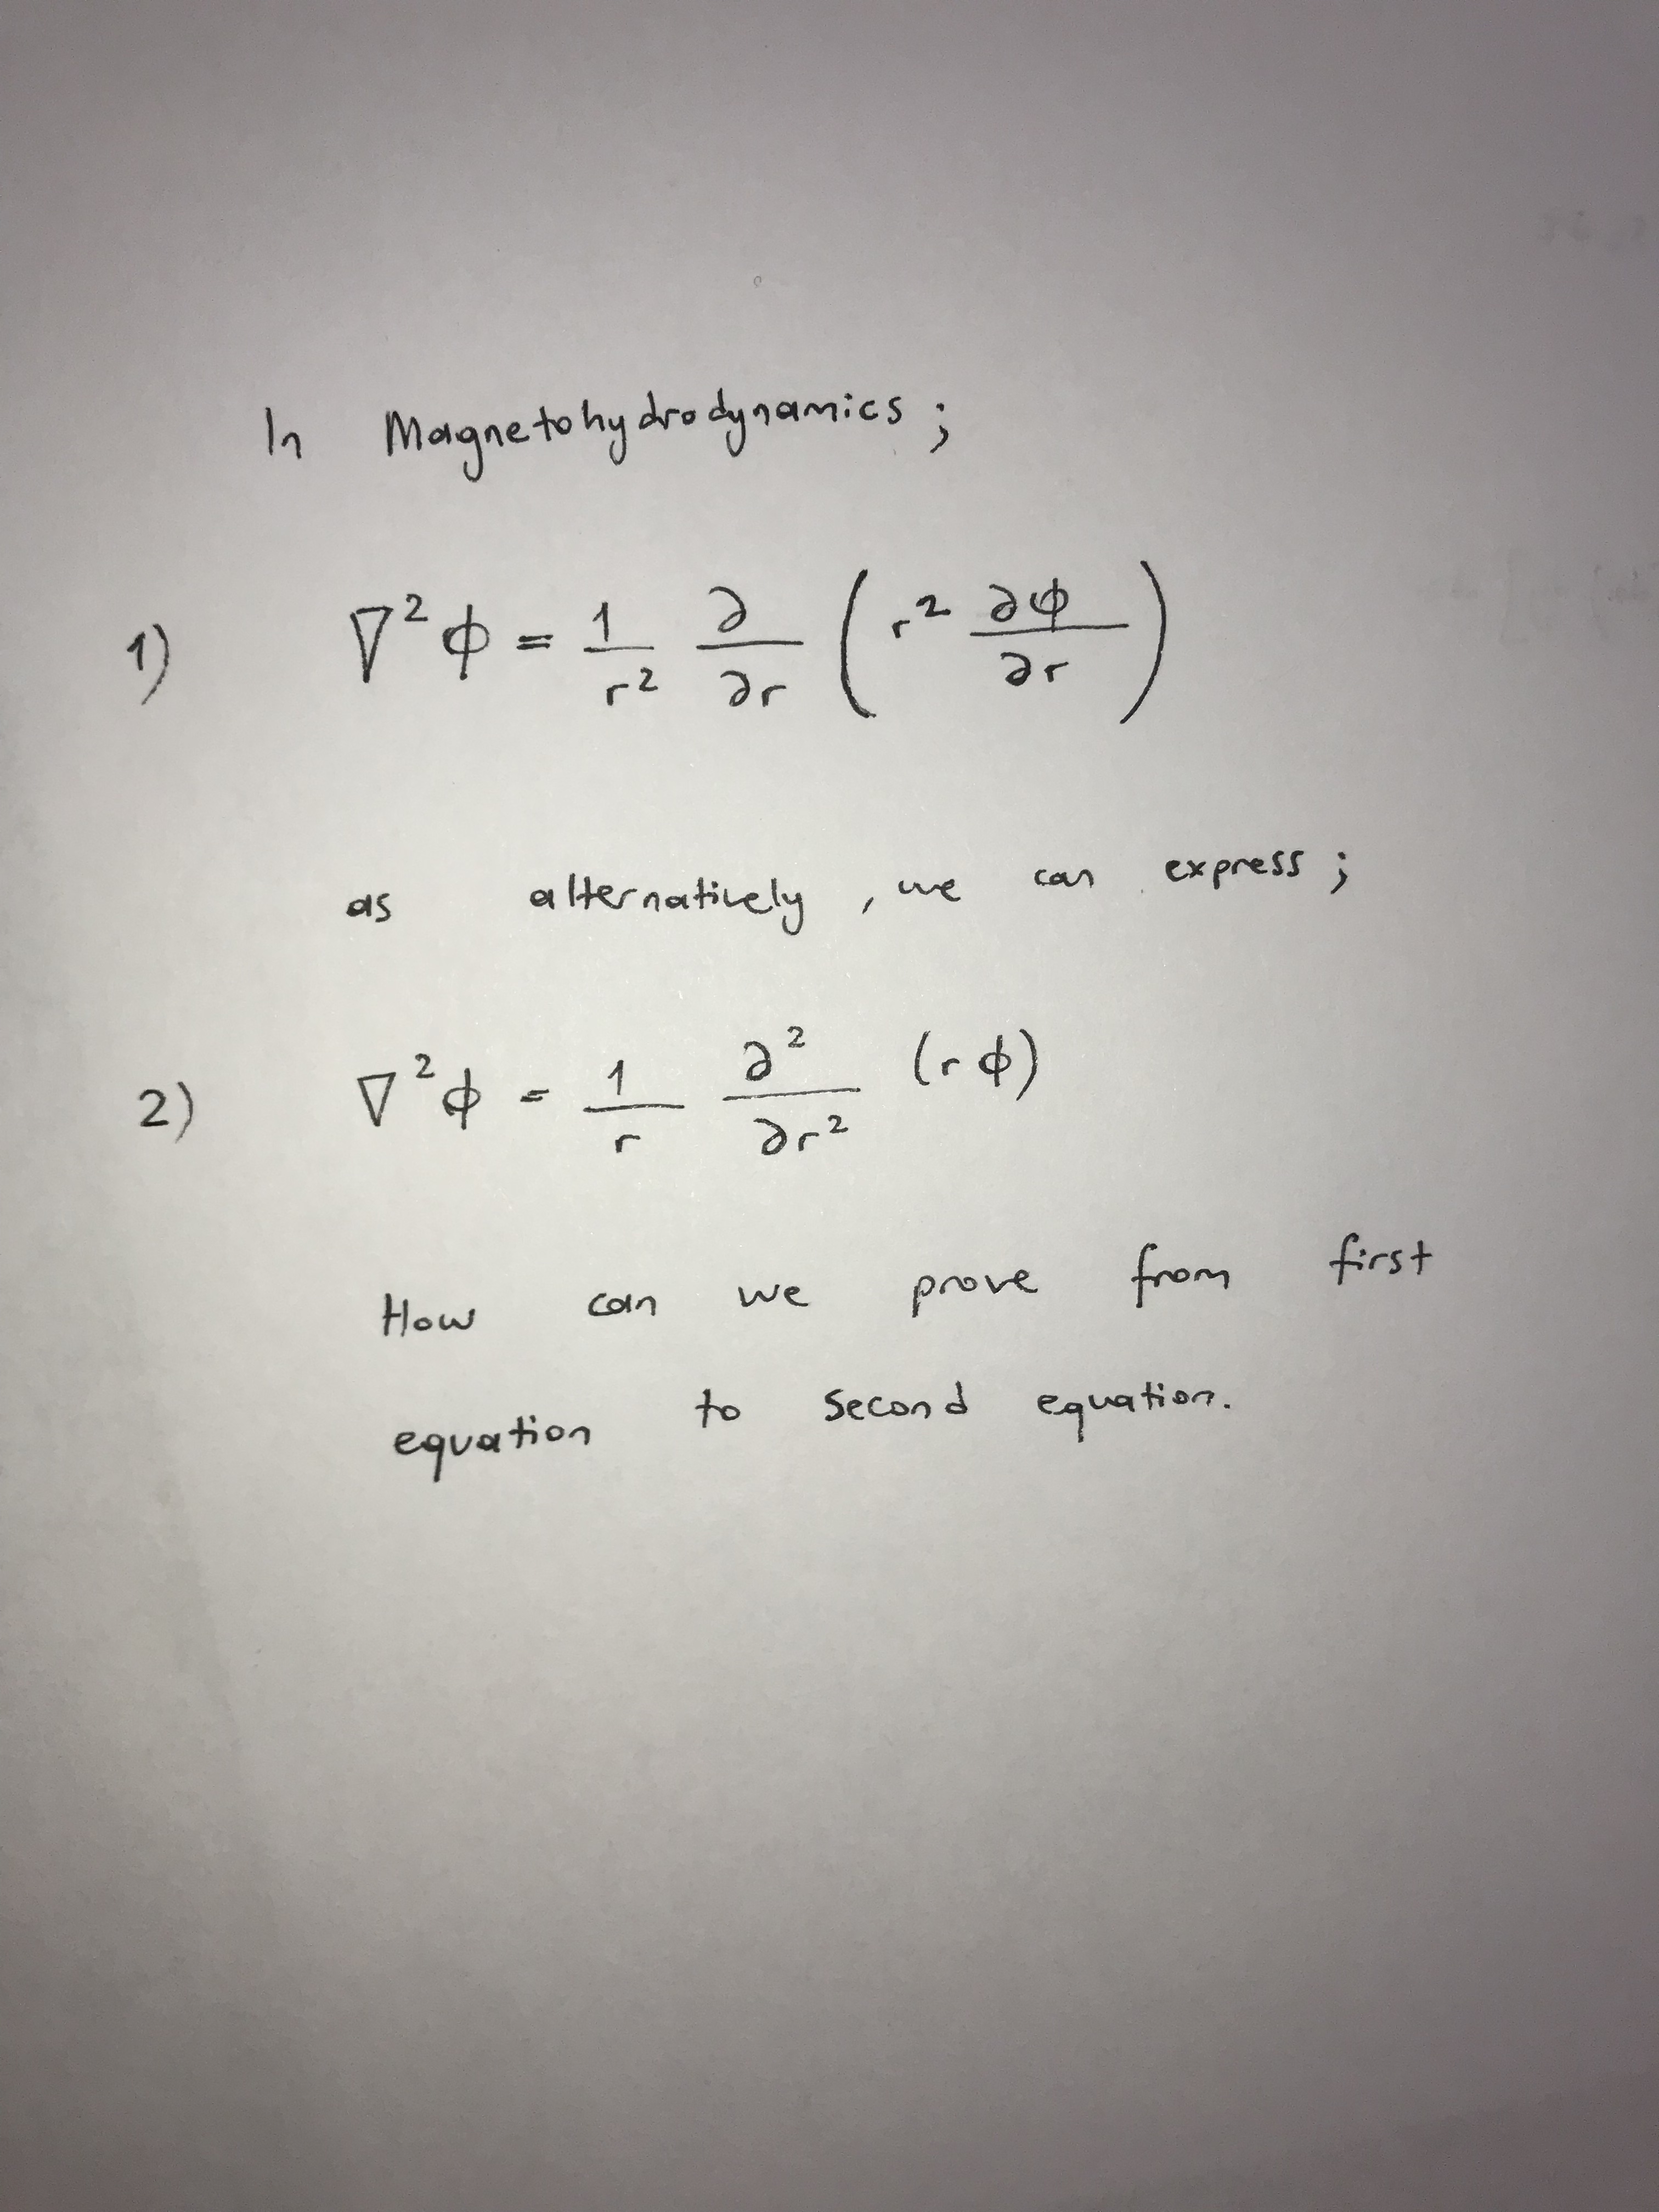 In Magnetohydrodynamics;
1) ∇²ϕ = 1/r² ∂/∂r (r² ∂ϕ/∂r)
as alternatively, we can express;
2) ∇²ϕ = 1/r ∂²/∂r² (rϕ)
How can we prove from first
equation to second equation.